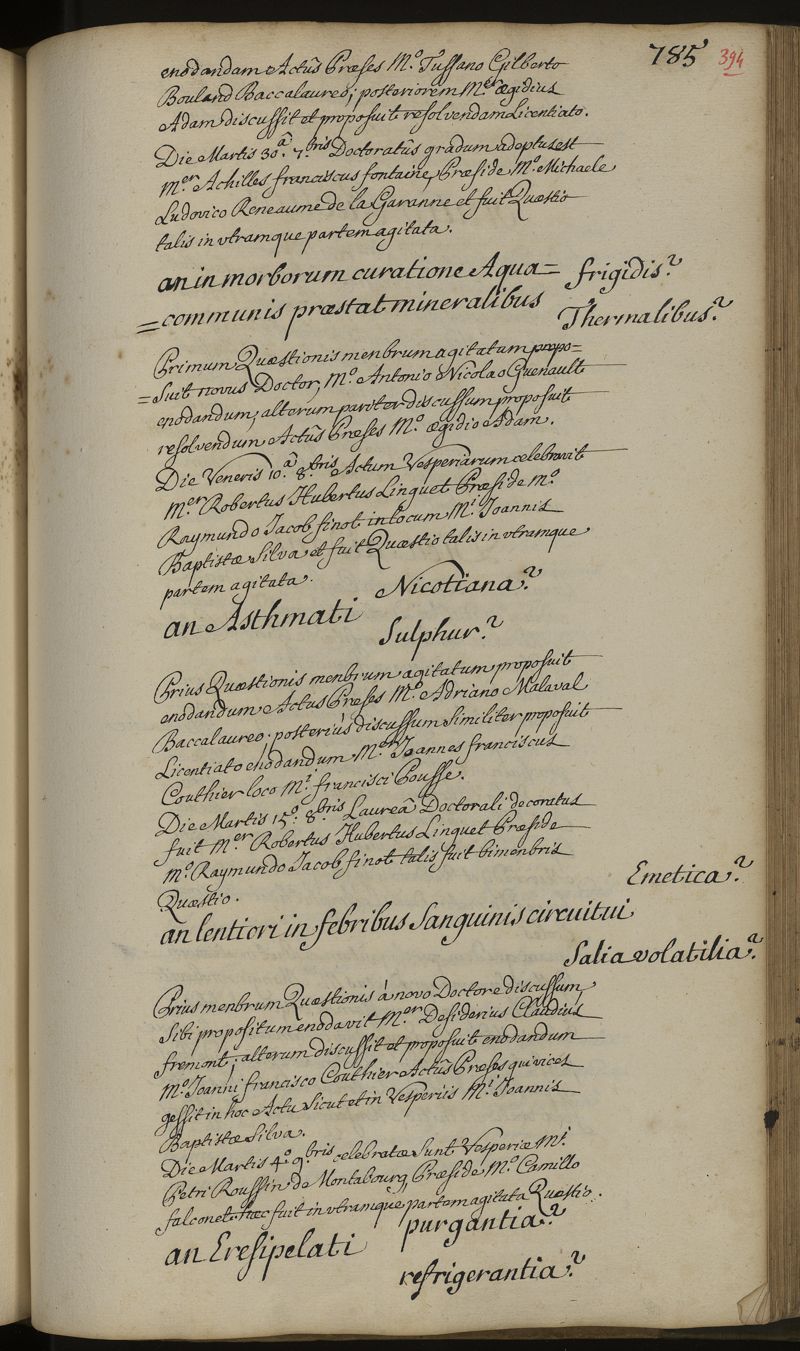 785 394
enodandam Actûs Præses M.º Tussano Gilberto
Bouland Baccalaureo; posteriorem M.er ægidius
Adam discussit et proposuit resolvendam Licentiato.
Die Martis 30.â 7.bris Doctoratûs gradum adeptus est
M.er Achilles franciscus fontaine, Præside M.º Michaele
Ludovico Reneaume de la Garanne et fuit Quæstio
talis in utramque partem agitata.
an in morborum curatione Aqua= frigidis?
=communis præstat mineralibus Thermalibus?
Primum Quæstionis menbrum agitatum propo=
=suit novus Doctor, M.º Antonio Nicolao Guenault
enodandum, alterum pariter discussum proposuit
resolvendum Actûs Præses M.º ægidio Adam.
Die Veneris 10.â 8.bris Actum Vesperiarum celebravit
M.er Robertus Hubertus Linguet Præside M.º
Raymundo Jacob finot in locum M.i Joannis
Baptistæ Silva et fuit Quæstio talis in utramque
partem agitata.
Nicotiana?
an Asthmati
Sulphur?
Prius Quæstionis menbrum agitatum proposuit
enodandum Actus Præses M.º Adriano Malaval
Baccalaureo; posteriùs discussum similiter proposuit
Licentiato enodandum M.er Joannes franciscus
Couthier loco M.i francisci Pousse.
Die Martis 15.º 8.bris Laureâ Doctorali decoratus
fuit M.er Robertus Hubertus Linguet Præside
M.º Raymundo Jacob finot talis fuit bimenbris
Quæstio.
Emetica?
an lentiori in febribus Sanguinis circuitui
Salia volatilia?
Prius menbrum Quæstionis à novo Doctore discussum
sibi propositum enodavit M.er Desiderius Claudius
fremont; alterum discussit et proposuit enodandum
M.º Joanni francisco Couthier Actûs Præses qui vices
gessit in hoc Actu sicut et in Vesperiis M.i Joannis
Baptistæ Silva.
Die Martis 4.º 9.bris celebratæ sunt Vesperiæ M.i
Petri Roussin de Montabourg, Præside M.º Camillo
falconet. hæc fuit in utramque partem agitata Quæstio.
purgantia?
an Eresipelati
refrigerantia?